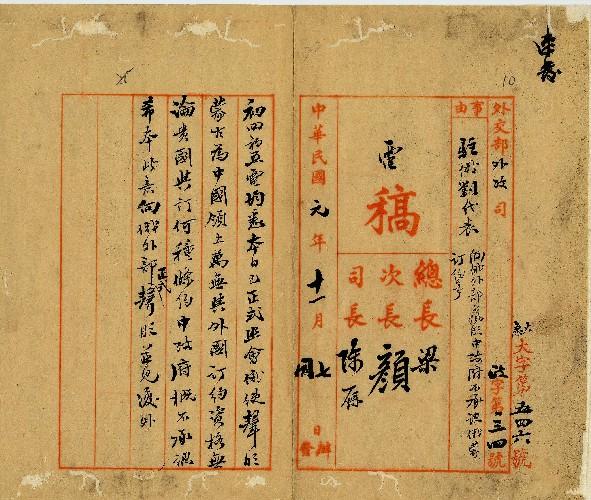 10
大字第五四六號
政字第三四號
外交部外政司
事由
駐俄劉代表
向俄外部聲明中政府不承認俄蒙
訂約事
電
稿
總長梁
次長顏
司長陳籙
中華民國元年十一月七日辦發
初四初五電均悉本日已正式照會俄使聲明
蒙古為中國領土萬無與外國訂約資格無
論貴國與訂何種條約中政府概不承認
希本此意向俄外部正式聲明並見復外